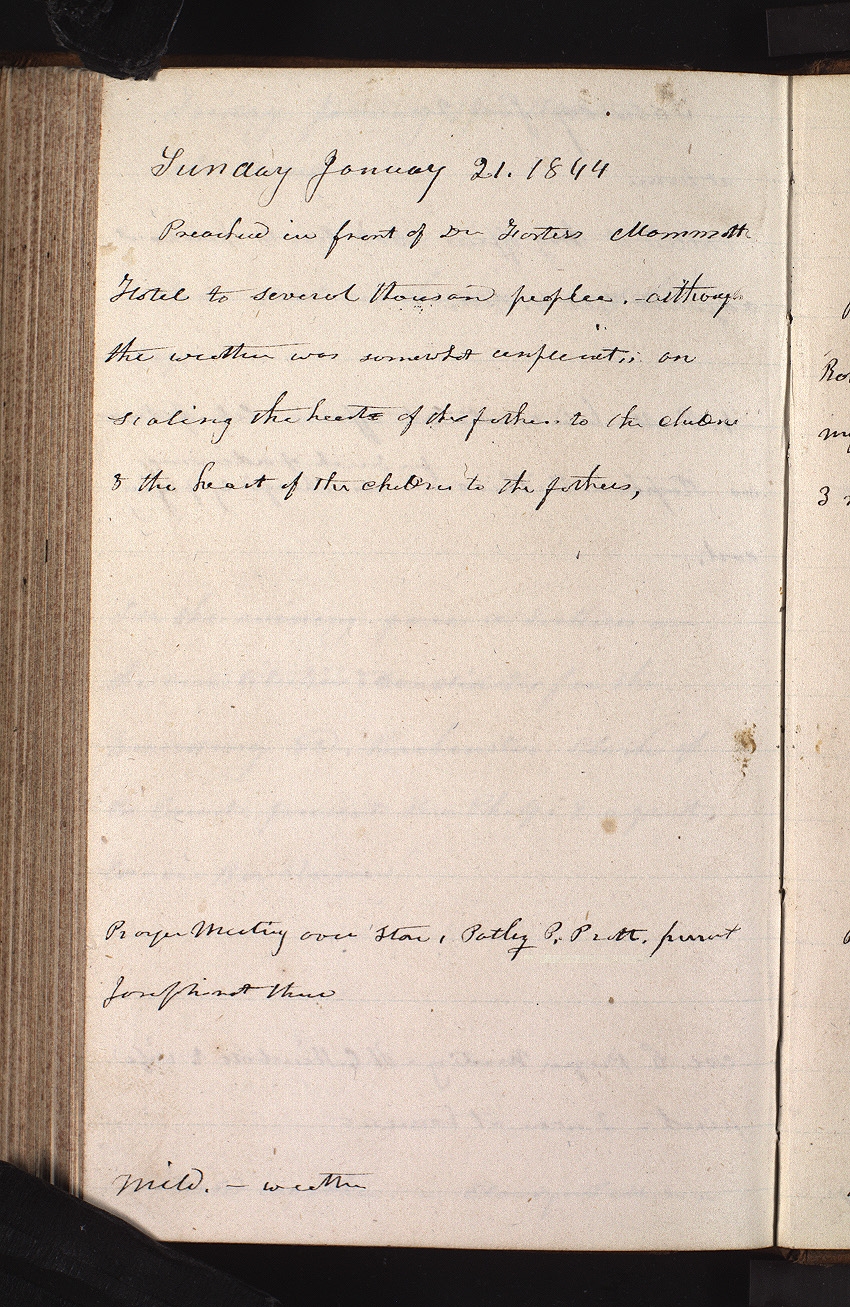 Sunday January 21. 1844
Preached in front of Dr Fosters Mammoth
Hotel to several thousand people. - although
the weather was somewhat unpleasant, on
sealing the hearts of the fathers to the children
& the heart of the children to the fathers,
Prayer Meeting over Store, Patly P. Pratt. present
Joseph not there
Mild. - weather
Ro
my
3